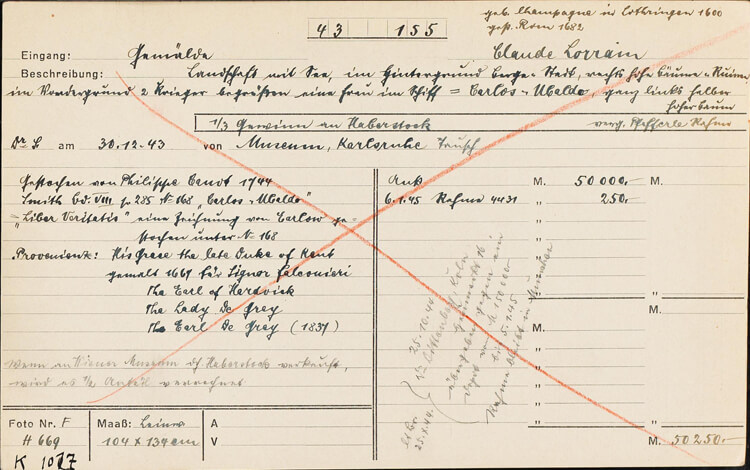 43 155
geb. Champagne in Lothringen 1600
gest. Rom 1682
Eingang: Gemälde Claude Lorrain
Beschreibung: Landschaft mit See, im Hintergrund Berge u. Stadt, rechts hohe Bäume u. Ruinen
im Vordergrund 2 Krieger begrüßen eine Frau im Schiff = Carlos u. Ubaldo, ganz links halber
hoher Baum
1/3 Gewinn an Haberstock
verg. Pfefferle Rahmen
Dr. G. am 30.12.43 von Museum, Karlsruhe Tausch
Gestochen von Philippe 1744
Smith Bd: VIII p. 285 N. 168 "Carlos u. Ubaldo"
"Liber Veritatis" eine Zeichnung von Earlom ge-
stochen unter N. 168
Provenienz: His Grace the late Duke of Kent
gemalt 1667 für Signor Falconieri
The Earl of Hardwick
The Lady De Grey
The Earl De Grey (1837)
Wenn an Wiener Museum d/ Haberstock verkauft,
wird es 1/2 Anteil verrechnet
Ank M. 50 000.- M.
6.1.45 Rahme 4431 " 250.- "
25.10.44
Köln
übergeben gegen ein
Depot von M. 150 000
bis 5.1.45
Rahme bleibt in München
25.X.44.
M. 50 250.-
Foto Nr. F
H 669
K 1077
Maaß: Leinw
104 x 134 cm
A
V